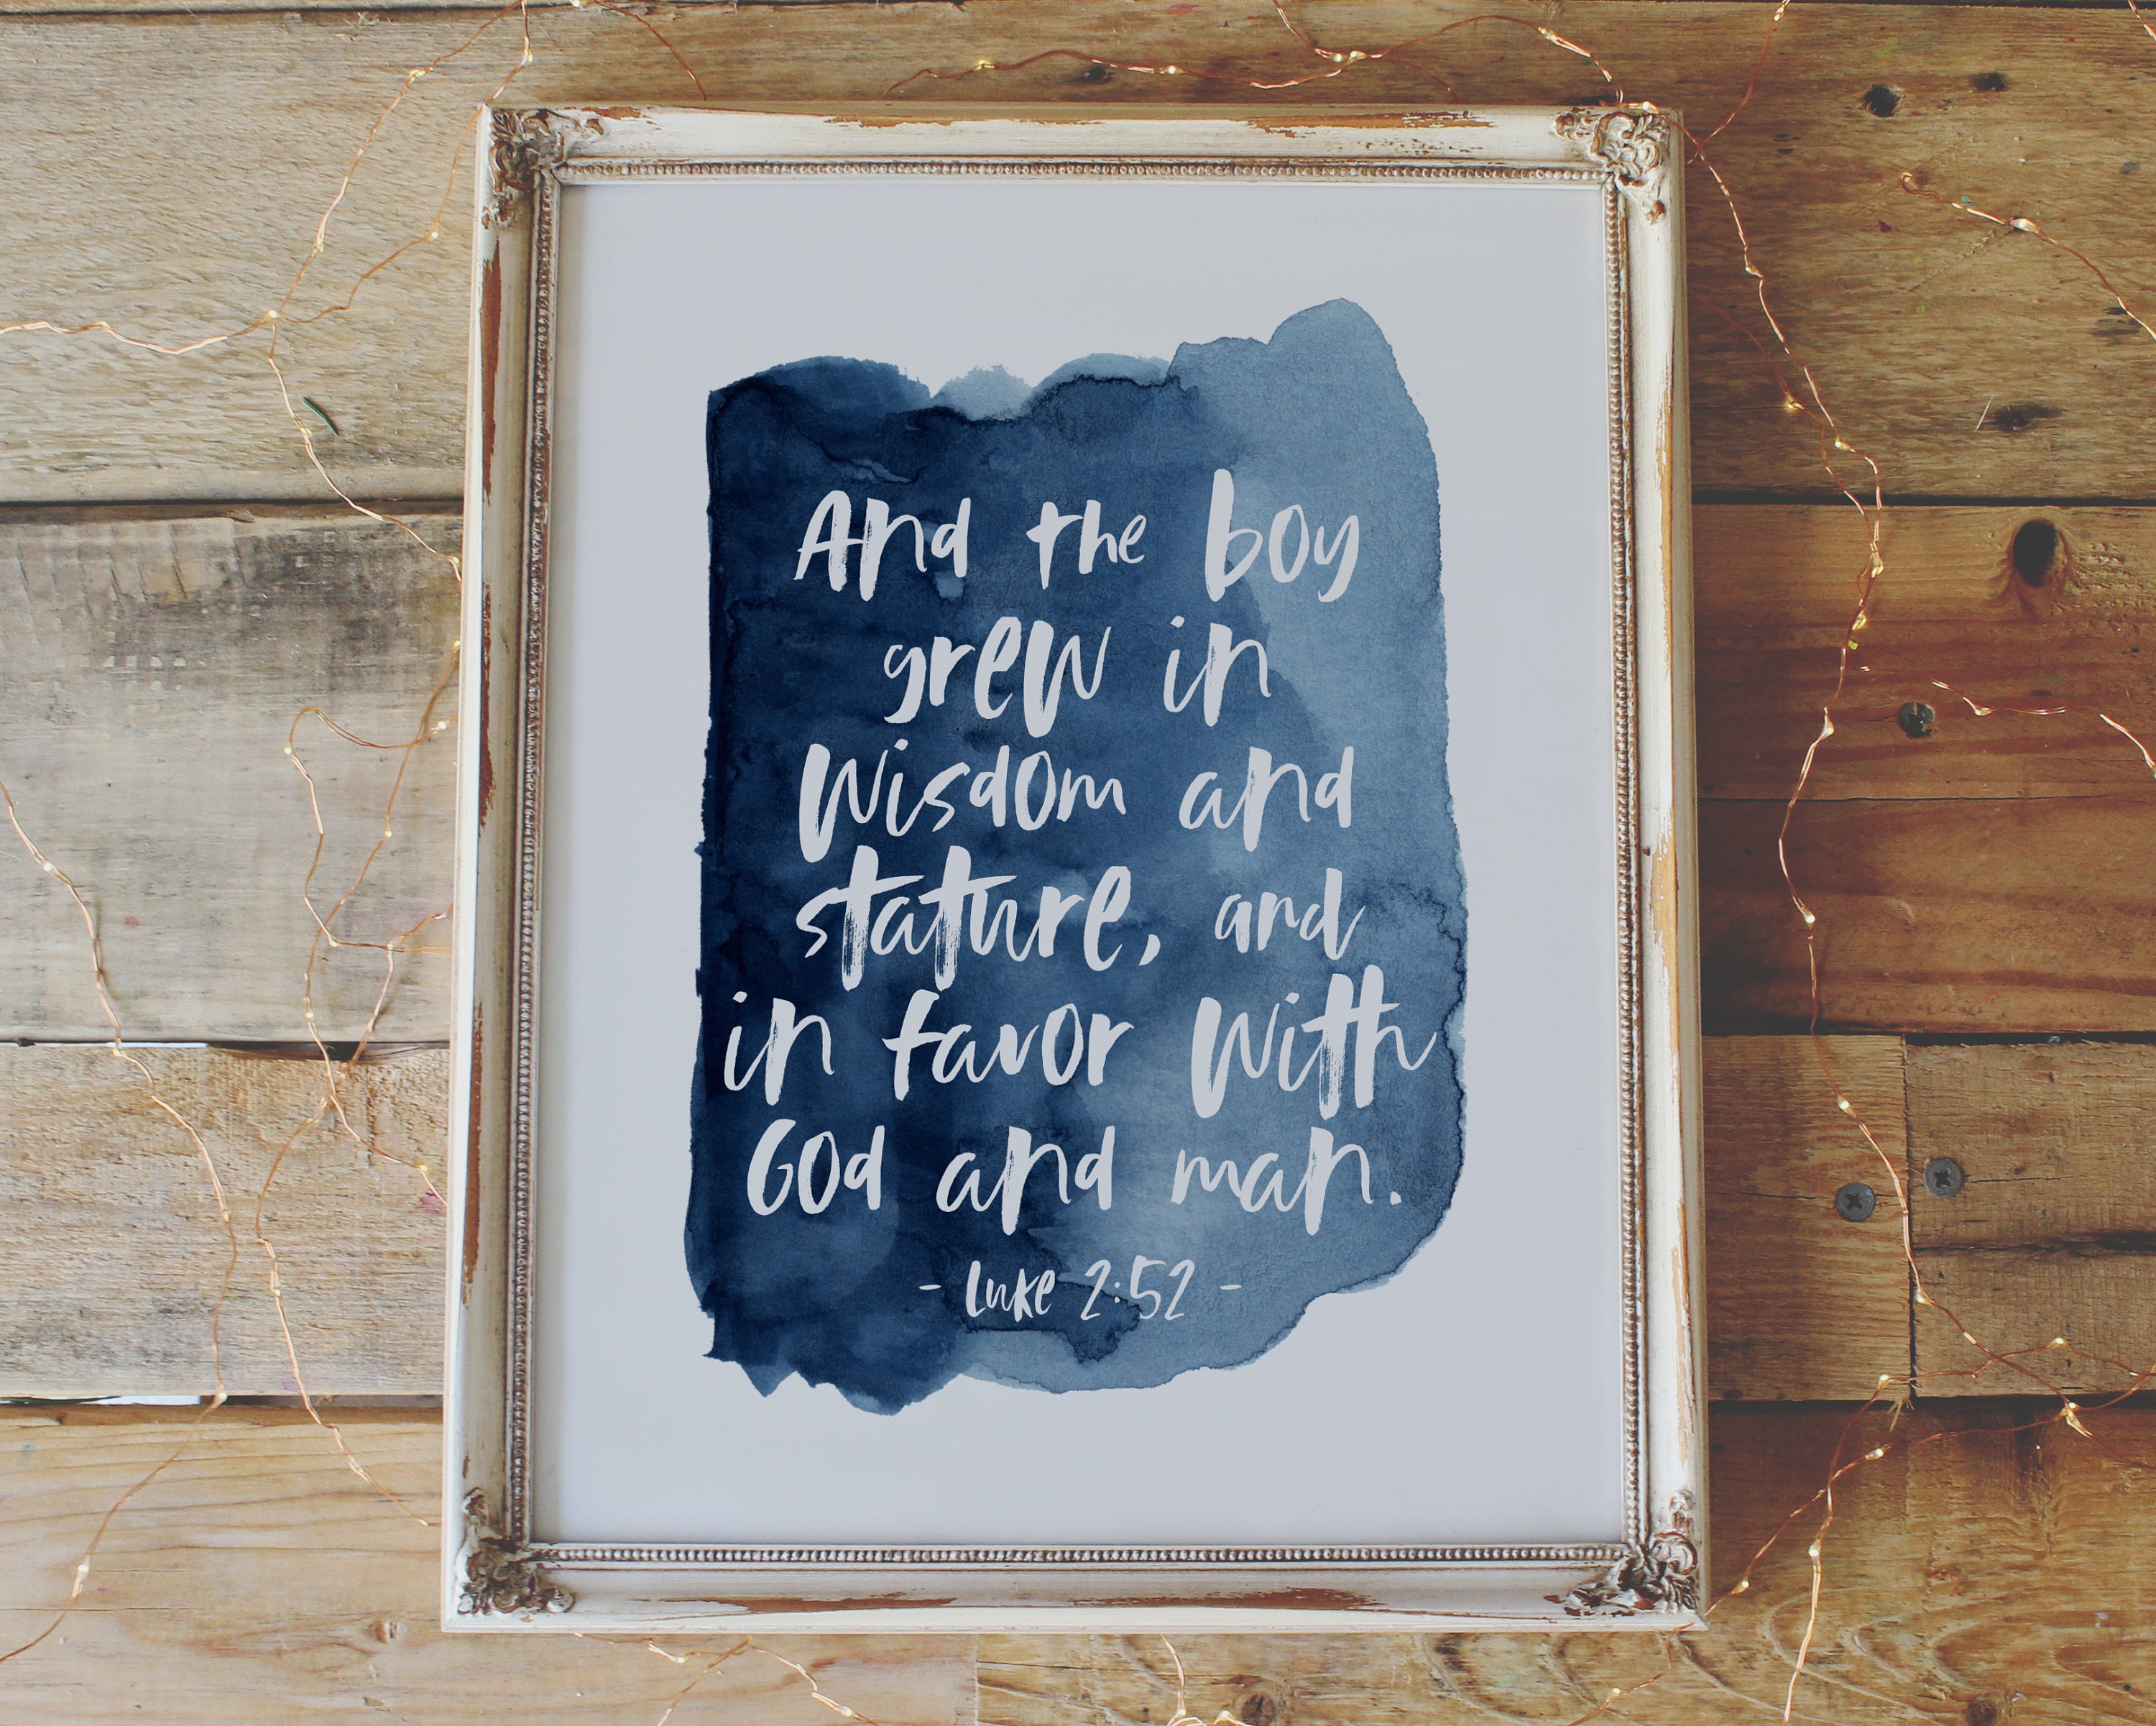 And the boy
grew in
wisdom and
stature, and
in favor with
God and man.
- Luke 2:52 -